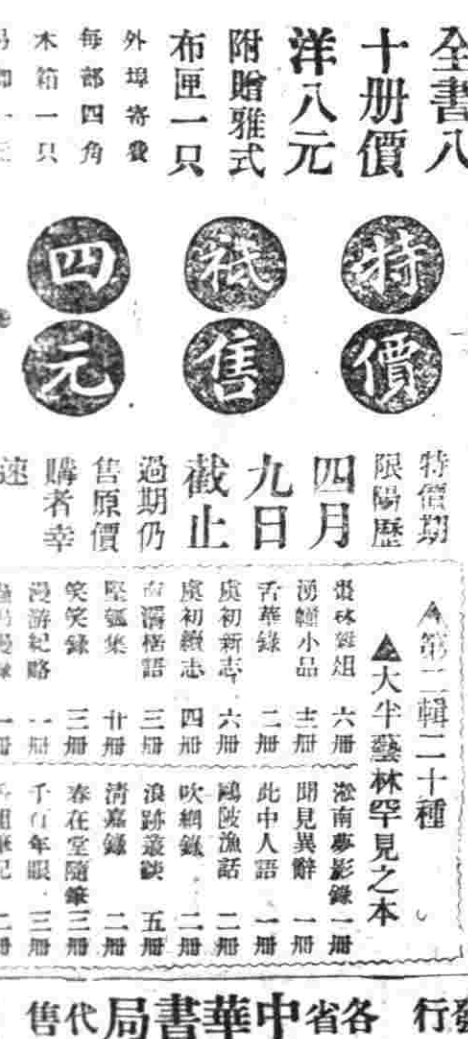 全書八
十册價
洋八元
附贈雅式
布匣一只
外埠寄費
每部四角
木箱一只
特價
祇售
四元
特價期
限陽歷
四月
九日
截止
過期仍
售原價
購者幸
速
▲第二輯二十種
▲大半藝林罕見之本
棗林雜俎 六册
湧幢小品 十二册
舌華錄 二册
虞初新志 六册
虞初續志 四册
三册
堅瓠集 廿册
笑笑錄 三册
漫游紀略 一册
一册
淞南夢影錄 一册
聞見異辭 一册
此中人語 一册
鷗陂漁話 二册
吹網錄 二册
浪跡叢談 五册
清嘉錄 二册
春在堂隨筆 三册
千百年眼 三册
二册
發行
各省中華書局代售